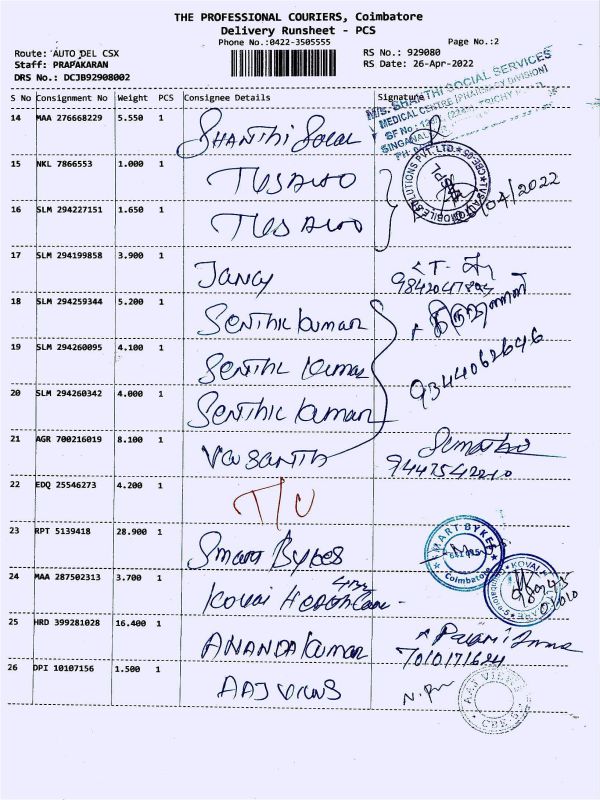 THE PROFESSIONAL COURIERS, Coimbatore
Delivery Runsheet - PCS
Phone No.:0422-3505555
Page No.:2
Route: AUTO DEL CSX
RS No.: 929080
Staff: PRAPAKARAN
RS Date: 26-Apr-2022
DRS No.: DCJB92908002
S No Consignment No Weight PCS Consignee Details Signature
M/S. SHANTHI SOCIAL SERVICES
MEDICAL CENTRE (PHARMACY DIVISION)
14 MAA 276668229 5.550 1 Shanthi Social
15 NKL 7866553 1.000 1 TVS AUTO
16 SLM 294227151 1.650 1 TVS AUTO
/04/2022
17 SLM 294199858 3.900 1 Jancy
18 SLM 294259344 5.200 1 Senthil kumar
19 SLM 294260095 4.100 1 Senthil kumar
9344062646
20 SLM 294260342 4.000 1 Senthil kumar
21 AGR 700216019 8.100 1 Vasanth
22 EDQ 25546273 4.200 1 T/U
23 RPT 5139418 28.900 1 Smart Bykes
SMART BYKES
Coimbatore
24 MAA 287502313 3.700 1 Kovai Healthcare
25 HRD 399281028 16.400 1 ANANDA kumar
7010171624
26 DPI 10107156 1.500 1 AAJ VIEWS
AAJ VIEWS
CBE